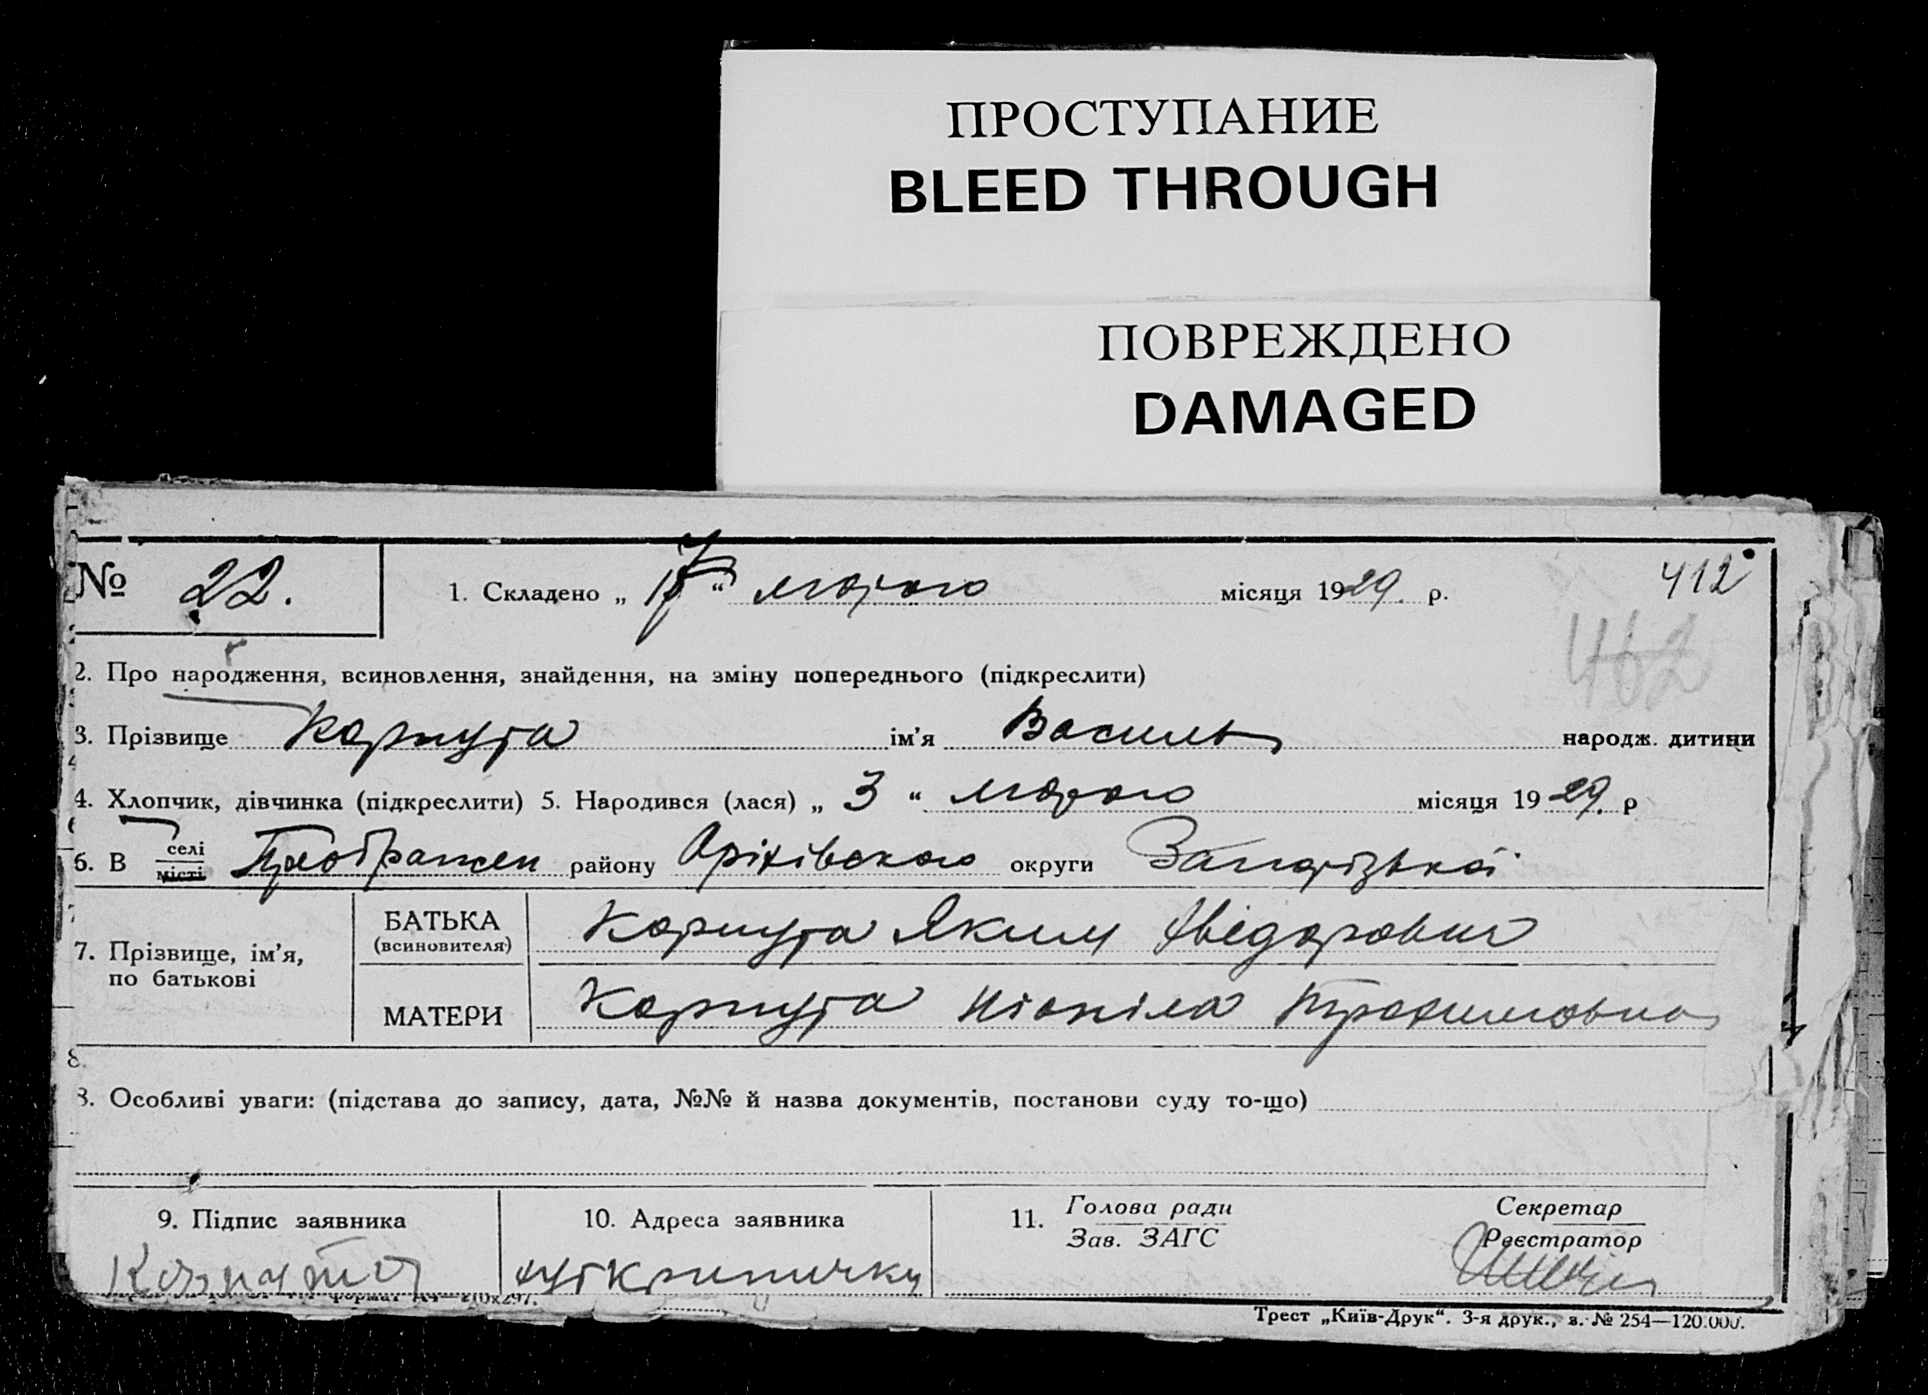 ПРОСТУПАНИЕ
BLEED THROUGH
ПОВРЕЖДЕНО
DAMAGED
№ 22. 1. Складено „ “ лютого місяця 1929 р. 412
462
2. Про народження, всиновлення, знайдення, на зміну попереднього (підкреслити)
3. Прізвище Корпута ім’я Василь народж. дитини
4. Хлопчик, дівчинка (підкреслити) 5. Народився (лася) „ 3 “ лютого місяця 1929. р
6. В селі місті Преображен району Оріхівского округи Запорізької
7. Прізвище, ім’я, по батькові
БАТЬКА (всиновителя) Корпута Яким Хведорович
МАТЕРИ Корпута
8. Особливі уваги: (підстава до запису, дата, №№ й назва документів, постанови суду то-що)
9. Підпис заявника 10. Адреса заявника 11. Голова ради Секретар
Зав. ЗАГС Реєстратор
Корпута
Трест „Київ-Друк“. 3-я друк., з. № 254—120.000.